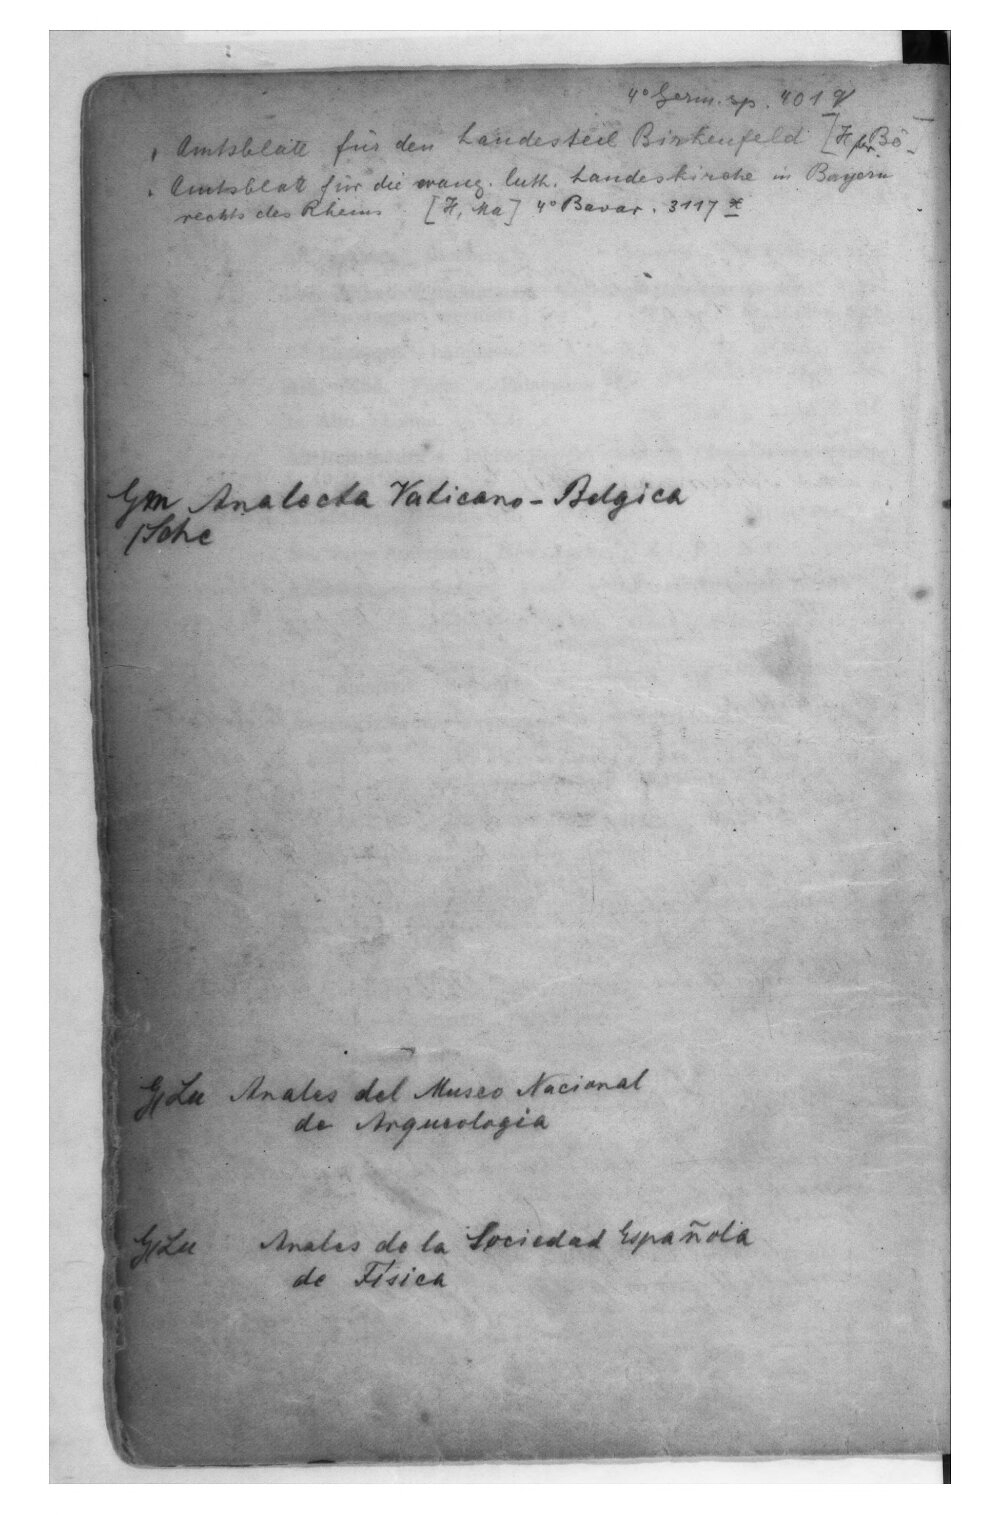 4° Germ. sp. 401 q
Amtsblatt für den Landesteil Birkenfeld [H
Amtsblatt für die evang. luth. Landeskirche in Bayern
rechts des Rheins [H, Ma] 4° Bavar. 3117 x
Gm Analecta Vaticano-Belgica
/Sche
G/Lu Anales del Museo Nacional
de Arqueologia
G/Lu Anales de la Sociedad Española
de Física